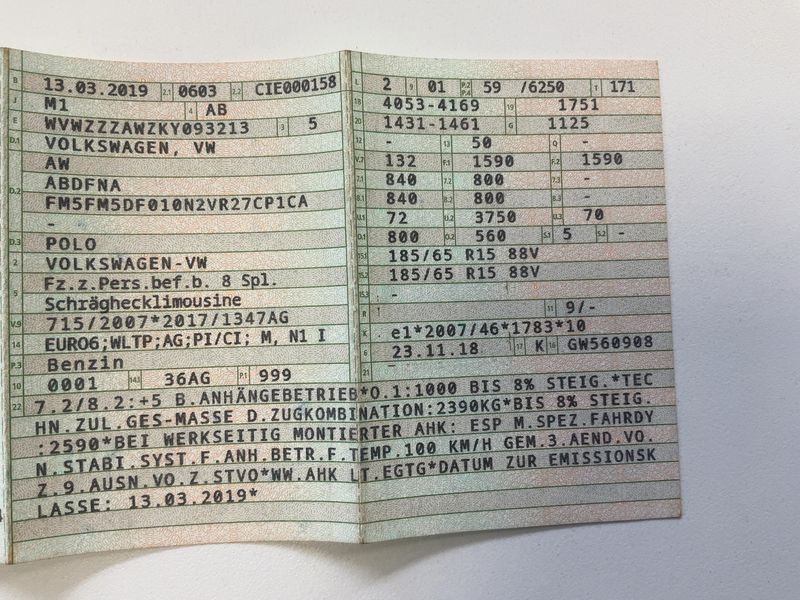 B 13.03.2019 2.1 0603 2.2 CIE000158
J M1 4 AB
E WVWZZZAWZKY093213 3 5
D.1 VOLKSWAGEN, VW
AW
D.2 ABDFNA
FM5FM5DF010N2VR27CP1CA
-
D.3 POLO
2 VOLKSWAGEN-VW
5 Fz.z.Pers.bef.b. 8 Spl.
Schräghecklimousine
V.9 715/2007*2017/1347AG
14 EURO6;WLTP;AG;PI/CI; M, N1 I
P.3 Benzin
10 0001 14.1 36AG P.1 999
L 2 9 01 P.2 P.4 59 /6250 T 171
18 4053-4169 19 1751
20 1431-1461 G 1125
12 - 13 50 Q -
V.7 132 F.1 1590 F.2 1590
7.1 840 7.2 800 7.3 -
8.1 840 8.2 800 8.3 -
U.1 72 U.2 3750 U.3 70
O.1 800 O.2 560 S.1 5 S.2 -
15.1 185/65 R15 88V
15.2 185/65 R15 88V
15.3 -
R 11 9/-
K e1*2007/46*1783*10
6 23.11.18 17 K 16 GW560908
21 -
22 7.2/8.2:+5 B.ANHÄNGEBETRIEB*O.1:1000 BIS 8% STEIG.*TEC
HN.ZUL.GES-MASSE D.ZUGKOMBINATION:2390KG*BIS 8% STEIG.
:2590*BEI WERKSEITIG MONTIERTER AHK: ESP M.SPEZ.FAHRDY
N.STABI.SYST.F.ANH.BETR.F.TEMP.100 KM/H GEM.3.AEND.VO.
Z.9.AUSN.VO.Z.STVO*WW.AHK LT.EGTG*DATUM ZUR EMISSIONSK
LASSE: 13.03.2019*